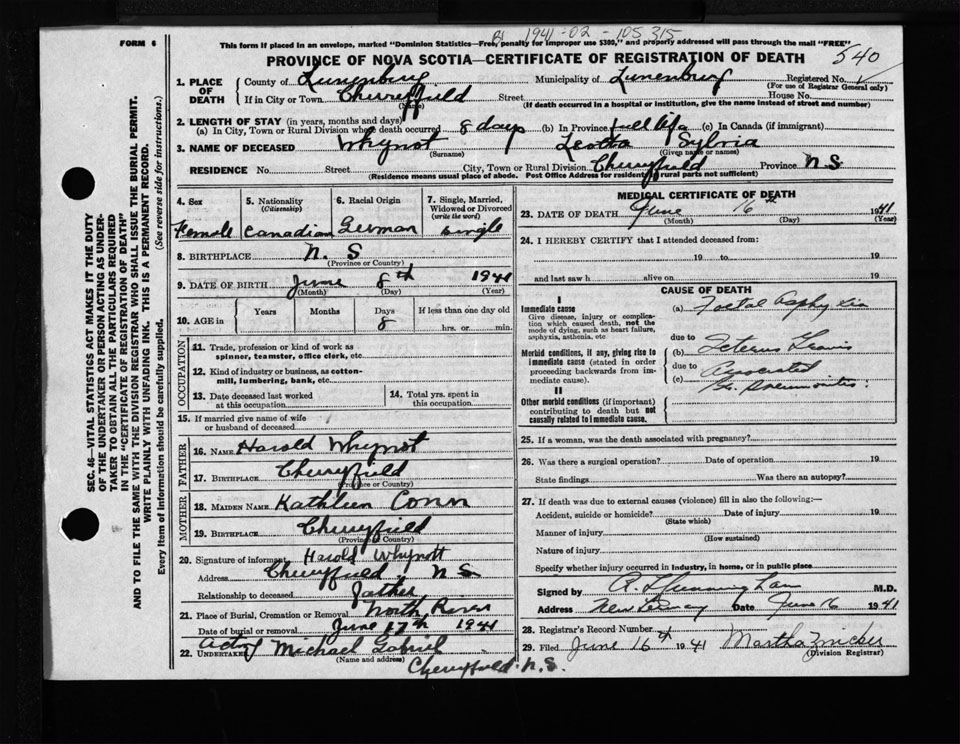 1941-02-105315
FORM 6
This form if placed in an envelope, marked "Dominion Statistics—Free, penalty for improper use $300," and properly addressed will pass through the mail "FREE"
540
PROVINCE OF NOVA SCOTIA—CERTIFICATE OF REGISTRATION OF DEATH
1. PLACE OF DEATH County of Lunenburg Municipality of Lunenburg Registered No.
(For use of Registrar General only)
If in City or Town Cherryfield Street House No.
(Name) (If death occurred in a hospital or institution, give the name instead of street and number)
2. LENGTH OF STAY (in years, months and days)
(a) In City, Town or Rural Division where death occurred 8 days (b) In Province full life (c) In Canada (if immigrant)
3. NAME OF DECEASED Whynot Leotta Sylvia
(Surname) (Given name or names)
RESIDENCE No. Street City, Town or Rural Division Cherryfield Province N.S
(Residence means usual place of abode. Post Office Address for residents rural parts not sufficient)
4. Sex
Female
5. Nationality
(Citizenship)
Canadian
6. Racial Origin
German
7. Single, Married, Widowed or Divorced
(write the word)
single
8. BIRTHPLACE N. S
(Province or Country)
9. DATE OF BIRTH June 8th 1941
(Month) (Day) (Year)
10. AGE in Years Months Days If less than one day old
8 hrs. or min.
OCCUPATION
11. Trade, profession or kind of work as
spinner, teamster, office clerk, etc.
12. Kind of industry or business, as cotton-
mill, lumbering, bank, etc.
13. Date deceased last worked
at this occupation
14. Total yrs. spent in
this occupation
15. If married give name of wife
or husband of deceased
FATHER
16. NAME Harold Whynot
17. BIRTHPLACE Cherryfield
(Province or Country)
MOTHER
18. MAIDEN NAME Kathleen Conn
19. BIRTHPLACE Cherryfield
(Province or Country)
20. Signature of informant Harold Whynott
Address Cherryfield N S
Relationship to deceased father
21. Place of Burial, Cremation or Removal North River
Date of burial or removal June 17th 1941
acting
22. UNDERTAKER Michael Gabriel
(Name and address)
Cherryfield N.S.
MEDICAL CERTIFICATE OF DEATH
23. DATE OF DEATH June 16th 1941
(Month) (Day) (Year)
24. I HEREBY CERTIFY that I attended deceased from:
19 to 19
and last saw h alive on 19
CAUSE OF DEATH
I
Immediate cause
Give disease, injury or complica-
tion which caused death, not the
mode of dying, such as heart failure,
asphyxia, asthenia, etc
(a) Foetal Asphyxia
due to
Morbid conditions, if any, giving rise to
immediate cause (stated in order
proceeding backwards from im-
mediate cause).
(b) Icterus Gravis
due to
(c) Associated
II
Other morbid conditions (if important)
contributing to death but not
causally related to immediate cause.
25. If a woman, was the death associated with pregnancy?
26. Was there a surgical operation? Date of operation 19
State findings Was there an autopsy?
27. If death was due to external causes (violence) fill in also the following:—
Accident, suicide or homicide? Date of injury 19
(State which)
Manner of injury
(How sustained)
Nature of injury
Specify whether injury occurred in industry, in home, or in public place
Signed by M.D.
Address New Germany Date June 16 1941
28. Registrar's Record Number
29. Filed June 16th 1941 Martha Zwicker
(Division Registrar)
SEC. 46—VITAL STATISTICS ACT MAKES IT THE DUTY
OF THE UNDERTAKER OR PERSON ACTING AS UNDER-
TAKER TO OBTAIN ALL THE PARTICULARS REQUIRED
IN THE "CERTIFICATE OF REGISTRATION OF DEATH"
AND TO FILE THE SAME WITH THE DIVISION REGISTRAR WHO SHALL ISSUE THE BURIAL PERMIT.
WRITE PLAINLY WITH UNFADING INK. THIS IS A PERMANENT RECORD.
Every item of information should be carefully supplied. (See reverse side for instructions.)